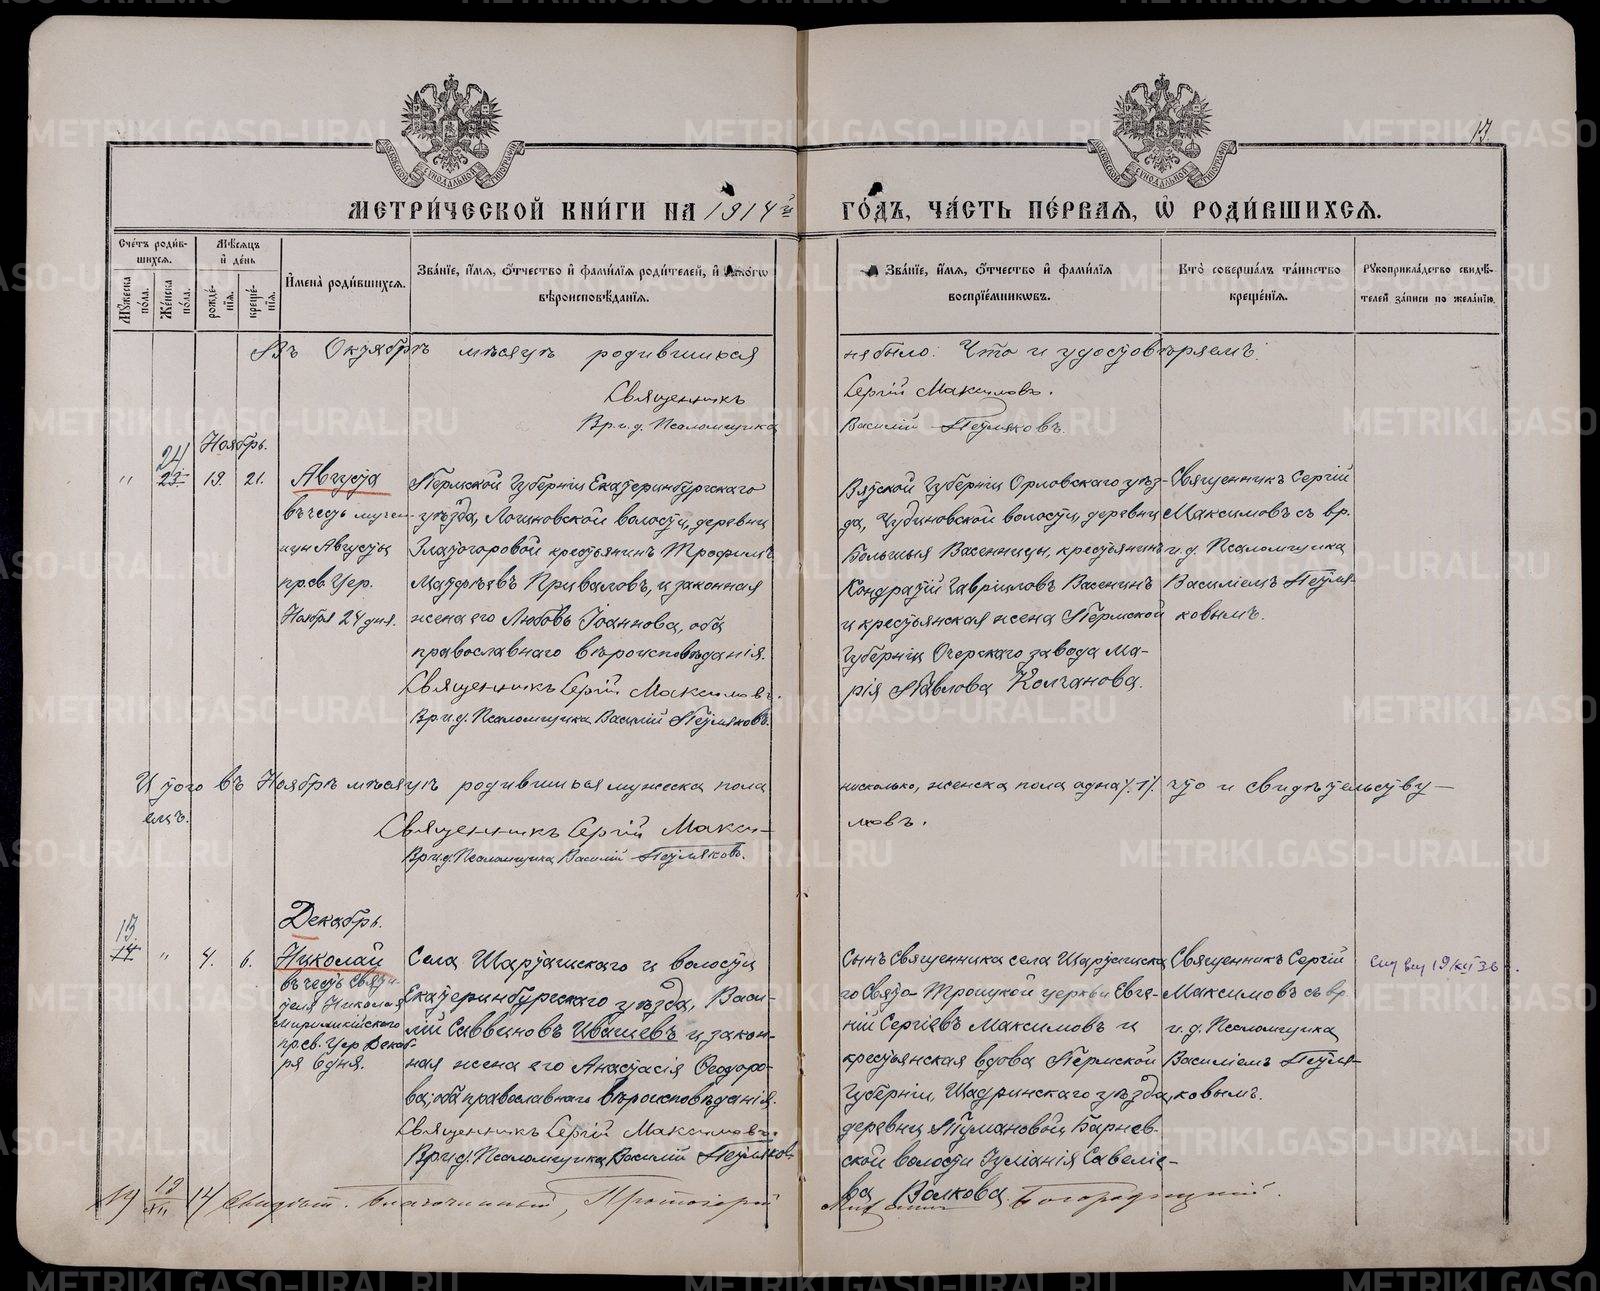 13.
МЕТРИ́ЧЕСКОЙ КНИ́ГИ НА 1914й ГО́ДЪ, ЧА́СТЬ ПЕ́РВАЯ, Ѡ҆ РОДИ́ВШИХСЯ.
Сче́тъ роди́вшихся.
Му́жеска по́ла.
Же́нска по́ла.
Мѣ́сяцъ и҆ де́нь
рожде́нїя.
креще́нїя.
И҆мена̀ роди́вшихся.
Зва́нїе, и҆́мя, ѻ҆́тчество и҆ фами́лїя роди́телей, и҆ како́гѡ вѣроисповѣ́данїя.
Зва́нїе, и҆́мя, ѻ҆́тчество и҆ фами́лїя воспрїе́мникѡвъ.
Кто̀ соверша́лъ та́инство креще́нїя.
Рꙋкоприкла́дство свидѣ́телей за́писи по жела́нїю.
Въ Октябрѣ мѣсяцѣ родившихся не было. Что и удостовѣряемъ.
Священникъ Сергій Максимовъ.
Вр. и. д. Псаломщика Василій Петляковъ.
Ноябрь.
" 24 23 19. 21.
Августа
въ честь мучен-
ицы Августы
пр. св. Цер.
Ноября 24 дня.
Пермской Губерніи Екатеринбургскаго
уѣзда, Логиновской волости, деревни
Златогоровой крестьянинъ Трофимъ
Матфѣевъ Приваловъ, и законная
жена его Любовь Іоаннова, оба
православнаго вѣроисповѣданія.
Священникъ Сергій Максимовъ.
Вр. и д. Псаломщика Василій Петляковъ.
Вятской Губерніи Орловскаго уѣз-
да, Чудиновской волости, деревни
Большія Васенины, крестьянинъ
Кондратій Гавриловъ Васенинъ
и крестьянская жена Пермской
Губерніи Очерскаго завода Ма-
рія Павлова Колчанова.
Священникъ Сергій
Максимовъ съ вр.
и. д. Псаломщика
Василіемъ Петля-
ковымъ.
Итого въ Ноябрѣ мѣсяцѣ родившихся мужеска пола нисколько, женска пола одна /.1/. что и свидѣтельству-
емъ.
Священникъ Сергій Макси-
мовъ.
Вр. и д. Псаломщика Василій Петляковъ.
Декабрь.
13. 14 " 4. 6.
Николай
въ честь Святи-
теля Николая
Мирликійскаго
пр. св. Цер Декаб-
ря 6 дня.
Села Шарташскаго и волости
Екатеринбургскаго уѣзда, Васи-
лій Саввиновъ Ивашевъ и закон-
ная жена его Анастасія Ѳеодоро-
ва, оба православнаго вѣроисповѣданія.
Священникъ Сергій Максимовъ.
Вр. и д. Псаломщика Василій Петляков
Сынъ Священника села Шарташска-
го Свято-Троицкой церкви Евге-
ній Сергіевъ Максимовъ и
крестьянская вдова Пермской
Губерніи, Шадринскаго уѣзда,
деревни Тумановой Барнев-
ской волости Іуліанія Савеліе-
ва Волкова.
Священникъ Сергій
Максимовъ съ вр.
и. д. Псаломщика
Василіемъ Петля-
ковымъ.
19/XII 36
19 19/XII 14 Свидѣт. Благочинный, Протоіерей Богородицкій.
METRIKI.GASO-URAL.RU